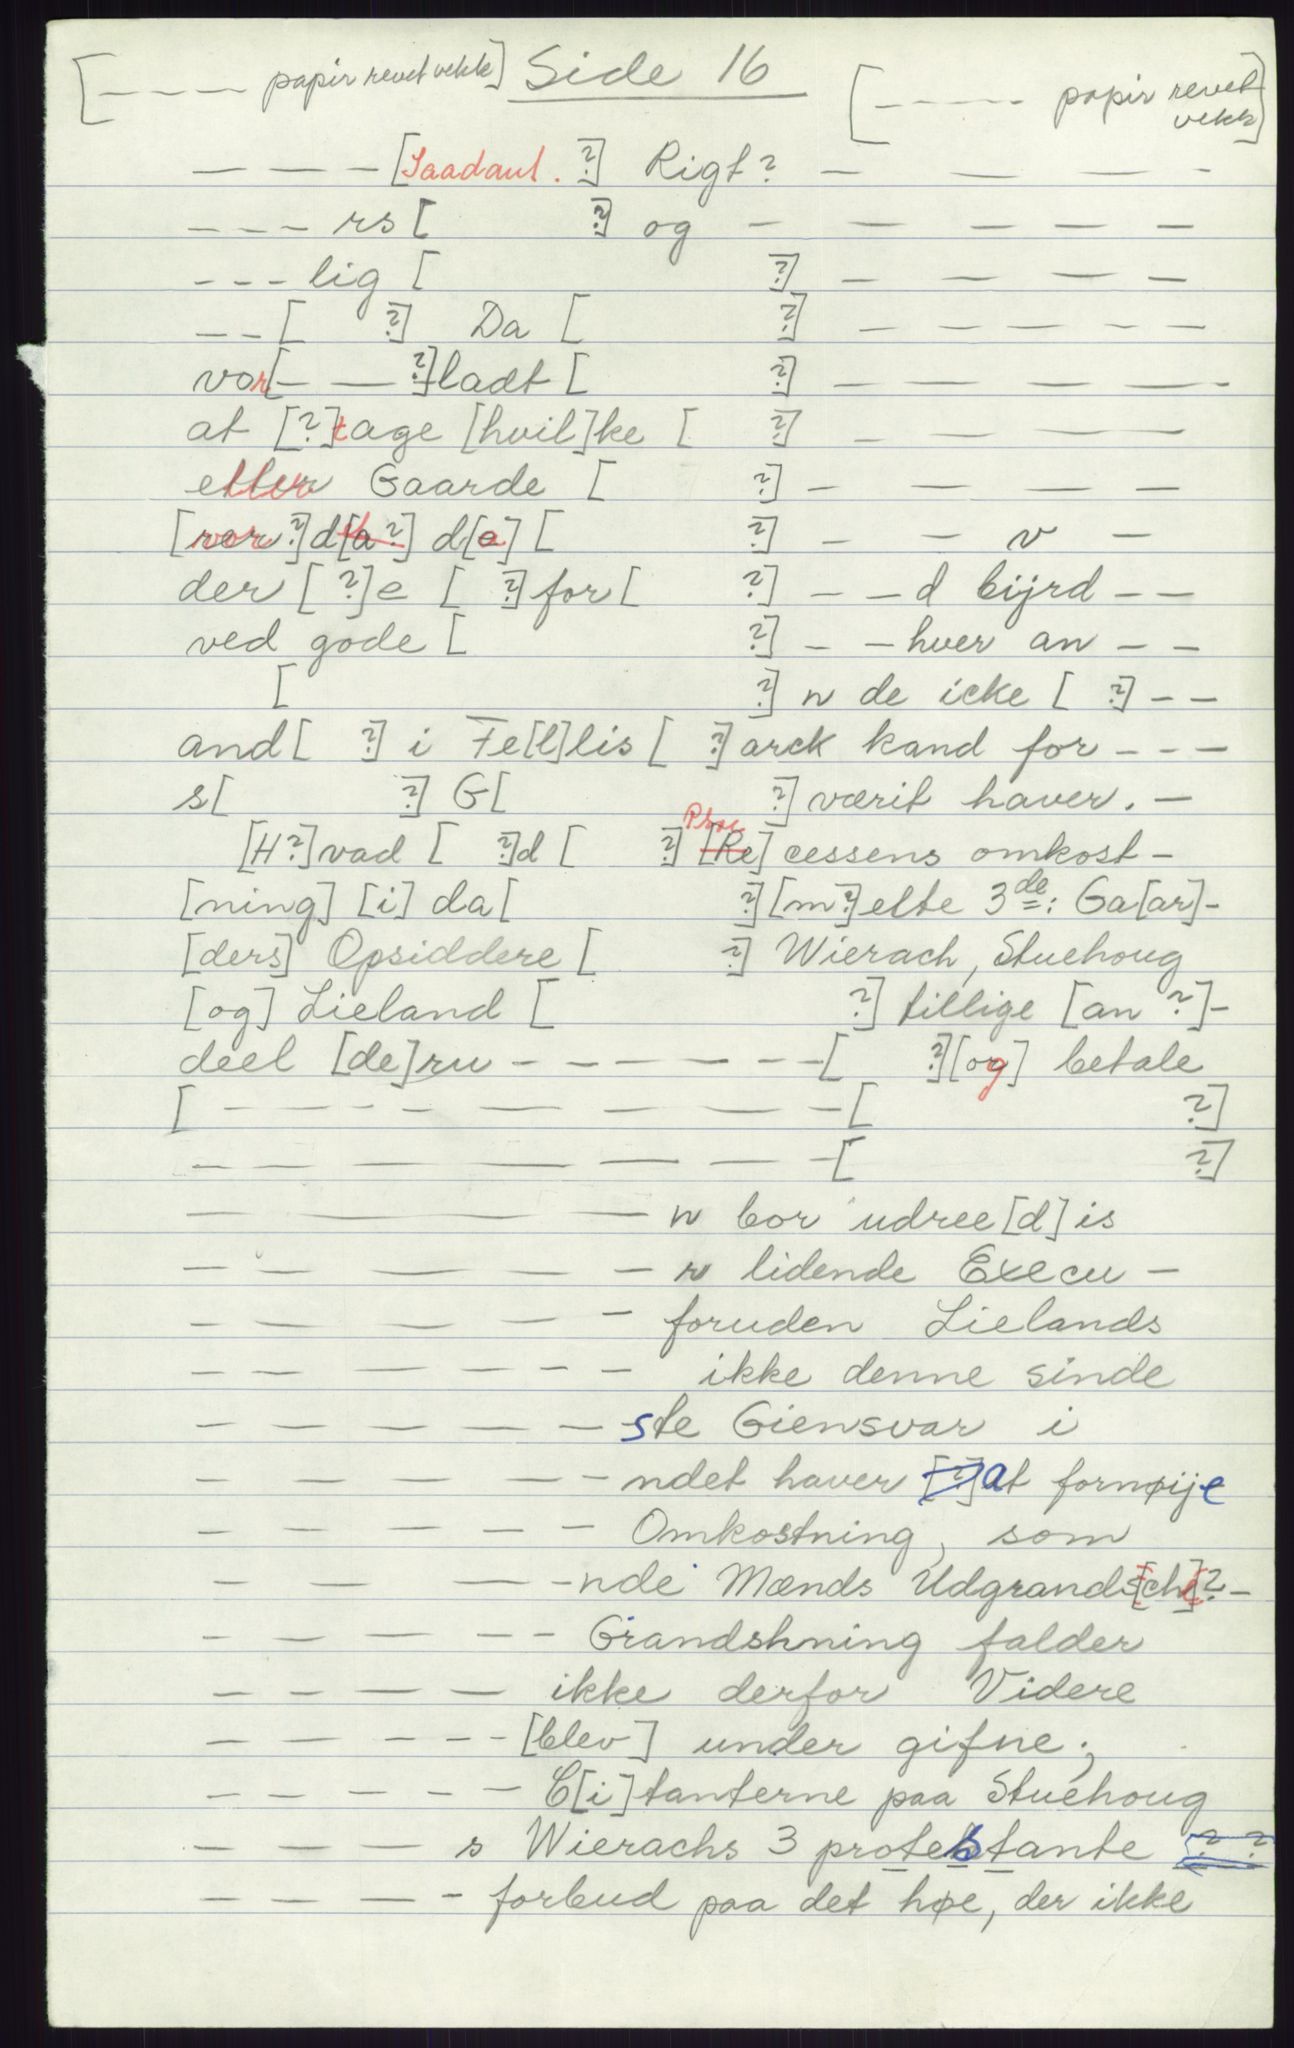 [ – – – – papir revet vekk] Side 16 [ – – – – – papir revet vekk]
– – – – [Saadant. ?] Rigt? – – – – –
– – – – rs [ ?] og – – – – –
– – – lig [ ?] – – – –
– – [ ?] Da [ ?] – – – – – –
vor[– – ?]ladt [ ?] – – – – –
at [?]tage [hvil]ke [ ?] – – – –
eller Gaarde [ ?] – – – –
[vor ?]d[a ?] d[e] [ ?] – – v –
der [ ?]e [ ?] for [ ?] – – d bijrd – –
ved gode [ ?] – – hver an – –
[ ?] n de icke [ ?] – –
and [ ?] i Fe[l]lis [ ?] arck kand for – – –
s[ ?] G[ ?] værit haver. –
[H?]vad [ ?]d [ ?] [Re]cessens omkost –
[ning] [i] da[ ?] [m?]elte 3de: Ga[ar]-
[ders] Opsiddere [ ?] Wierach, Stuehoug
[og] Lieland [ ?] tillige [an ?]-
deel [de]ru – – – – – – –[ ?] [og] betale
[ – – – – – – – – –[ ?]
– – – – – – – –[ ?]
– – – – – n bor udree[d]is
– – – – – – n lidende Execu –
– – – – – – foruden Lielands
– – – – – – – ikke denne sinde
– – – – – – ste Giensvar i
– – – – – – ndet haver [?] at fornøije
– – – – – – Omkostning, som
– – – – – nde Mænds Udgrands[ch]? –
– – – – – – Grandskning falder
– – – – – ikke derfor Videre
– – – – – – [blev] under gifne;
– – – – – – C[i]tanterne paa Stuehoug
– – – – s Wierachs 3 protestante ? ?
– – – – – forbud paa det høe, der ikke